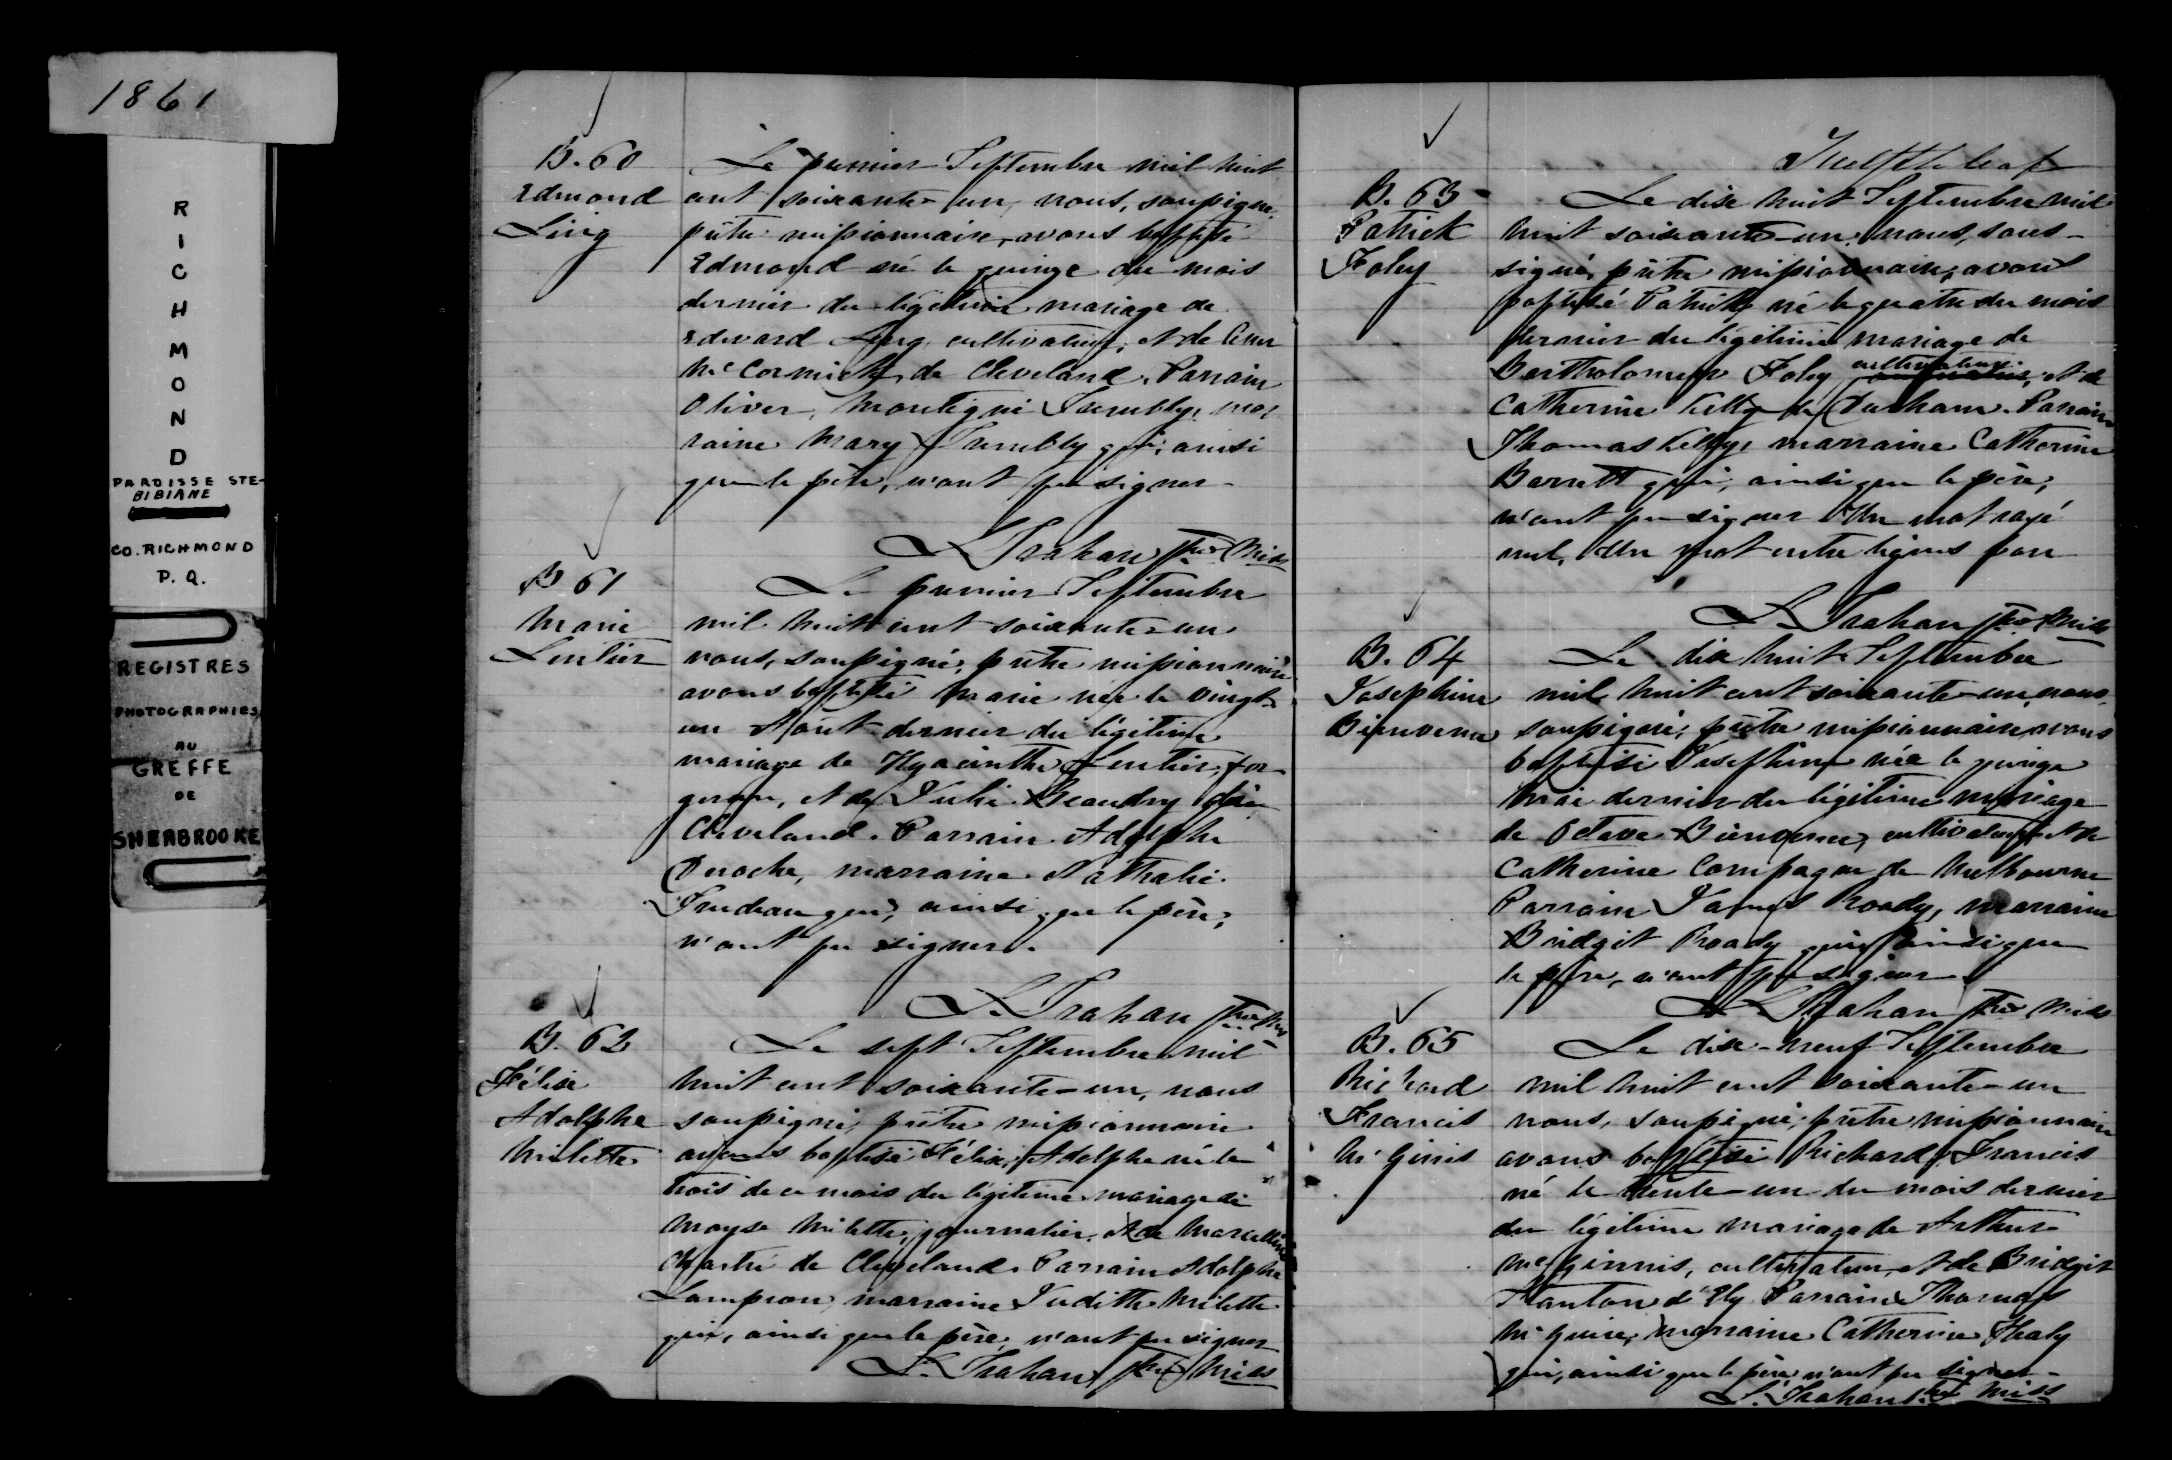 1861
RICHMOND
PAROISSE STE-
BIBIANE
CO. RICHMOND
P. Q.
REGISTRES
PHOTOGRAPHIES
AU
GREFFE
DE
SHERBROOKE
B. 60
Edmond
Ling
Le premier Septembre mil huit
cent soixante-un, nous, soussigné,
prêtre missionnaire, avons baptisé
Edmond né le quinze du mois
dernier du légitime mariage de
Edward Ling cultivateur, et de
McCormick, de Cleveland. Parrain
Oliver Montigni Trembly, mar
raine Mary Trembly qui, ainsi
que le père, n'ont pu signer.
L. Trahan ptre Miss
B 61
Marie
Lentier
Le premier Septembre
mil huit cent soixante-un
nous, soussigné, prêtre missionnaire
avons baptisé Marie née le vingt-
un Août dernier du légitime
mariage de Hyacinthe Lentier, for
geron, et de Julie Beaudry de
Cleveland. Parrain Adolphe
Deroche, marraine Nathalie
Trudeau qui, ainsi que le père,
n'ont pu signer.
L. Trahan ptre Miss
B. 62
Félix
Adolphe
Milette
Le sept Septembre mil
huit cent soixante-un, nous
soussigné, prêtre missionnaire
avons baptisé Félix, Adolphe né le
trois de ce mois du légitime mariage de
Moyse Milette, journalier, et de Marcelline
Chartré de Cleveland. Parrain Adolphe
Lampron, marraine Judith Milette
qui, ainsi que le père, n'ont pu signer
L. Trahan ptre Miss
Twelfth leaf
B. 63
Patrick
Foley
Le dix huit Septembre mil
huit soixante-un, nous, sous-
signé, prêtre missionnaire, avons
baptisé Patrick né le quatre du mois
dernier du légitime mariage de
Bartholomew Foley cultivateur, et de
Catherine Kelly de Durham. Parrain
Thomas Kelly, marraine Catherine
Barrett qui, ainsi que le père,
n'ont pu signer Un mot rayé
nul. Un mot entre lignes bon
L. Trahan ptre Miss
B. 64
Josephine
Bienvenu
Le dix huit Septembre
mil huit cent soixante-un, nous,
soussigné, prêtre missionnaire, avons
baptisé Josephine née le quinze
Mai dernier du légitime mariage
de Octave Bienvenu, cultivateur, et de
Catherine Compagna de Melbourne
Parrain James Roady, marraine
Bridgit Roady qui, ainsi que
le père, n'ont pu signer
L. Trahan ptre Miss
B. 65
Richard
Francis
McGinis
Le dix-neuf Septembre
mil huit cent soixante-un
nous, soussigné, prêtre missionnaire
avons baptisé Richard, Francis
né le trente-un du mois dernier
du légitime mariage de Arthur
McGinnis, cultivateur, et de Bridgit
Stanton d'Ely Parrain Thomas
McGuire, marraine Catherine Healy
qui, ainsi que le père, n'ont pu signer
L. Trahan ptre Miss